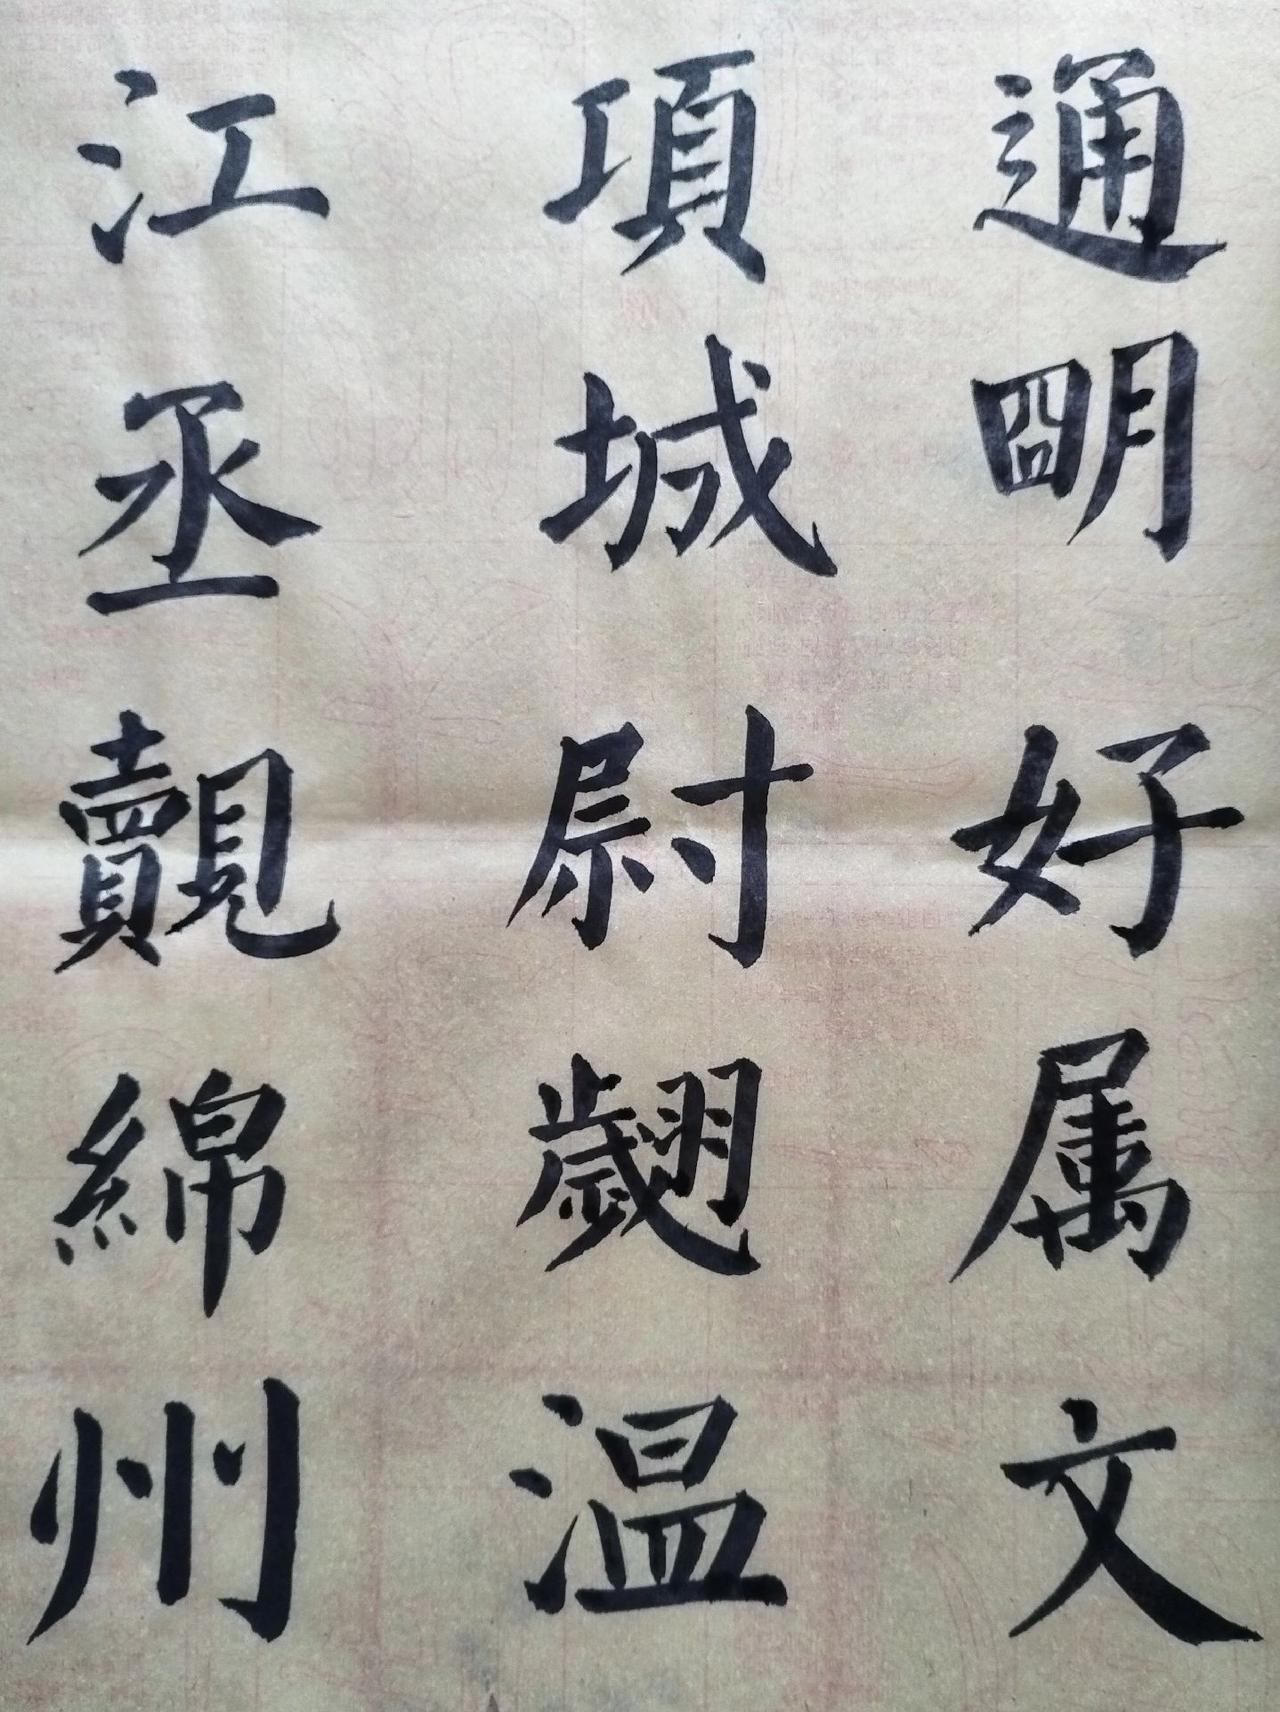 通明好属文
項城尉翽温
江丞覿綿州